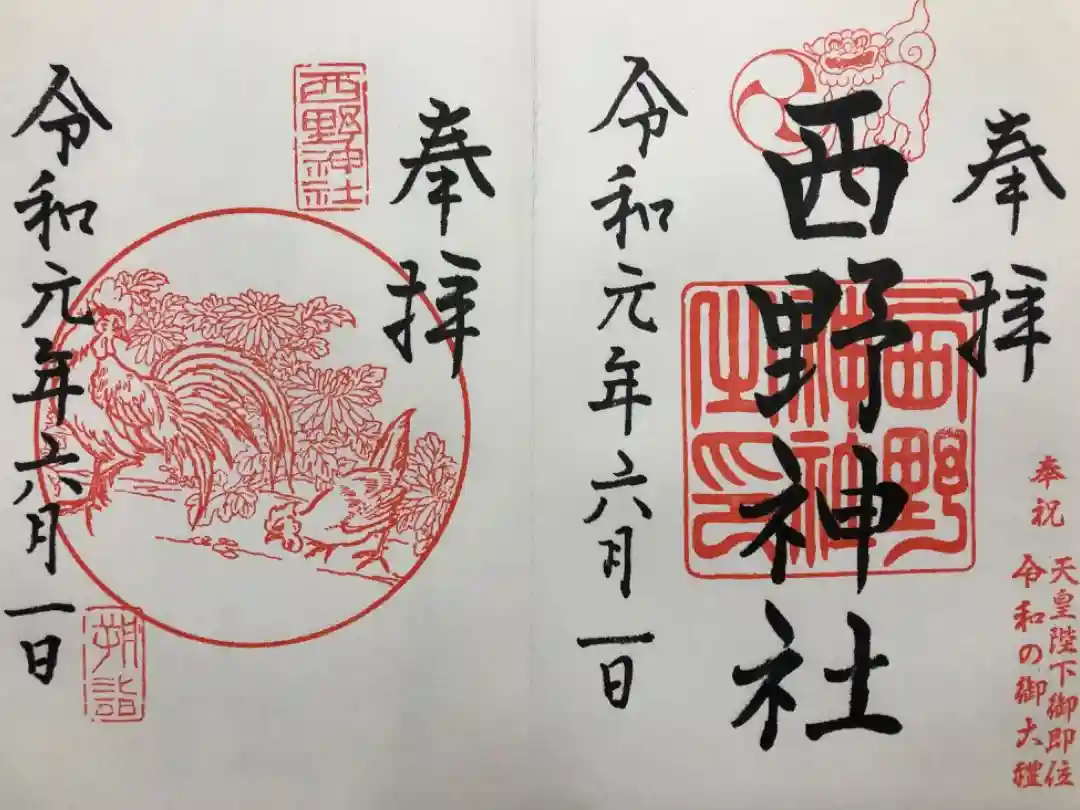 奉拝
奉祝
天皇陛下御即位
令和の御大禮
西野神社
西野神社之印
令和元年六月一日
奉拝
西野神社
令和元年六月一日
朔詣